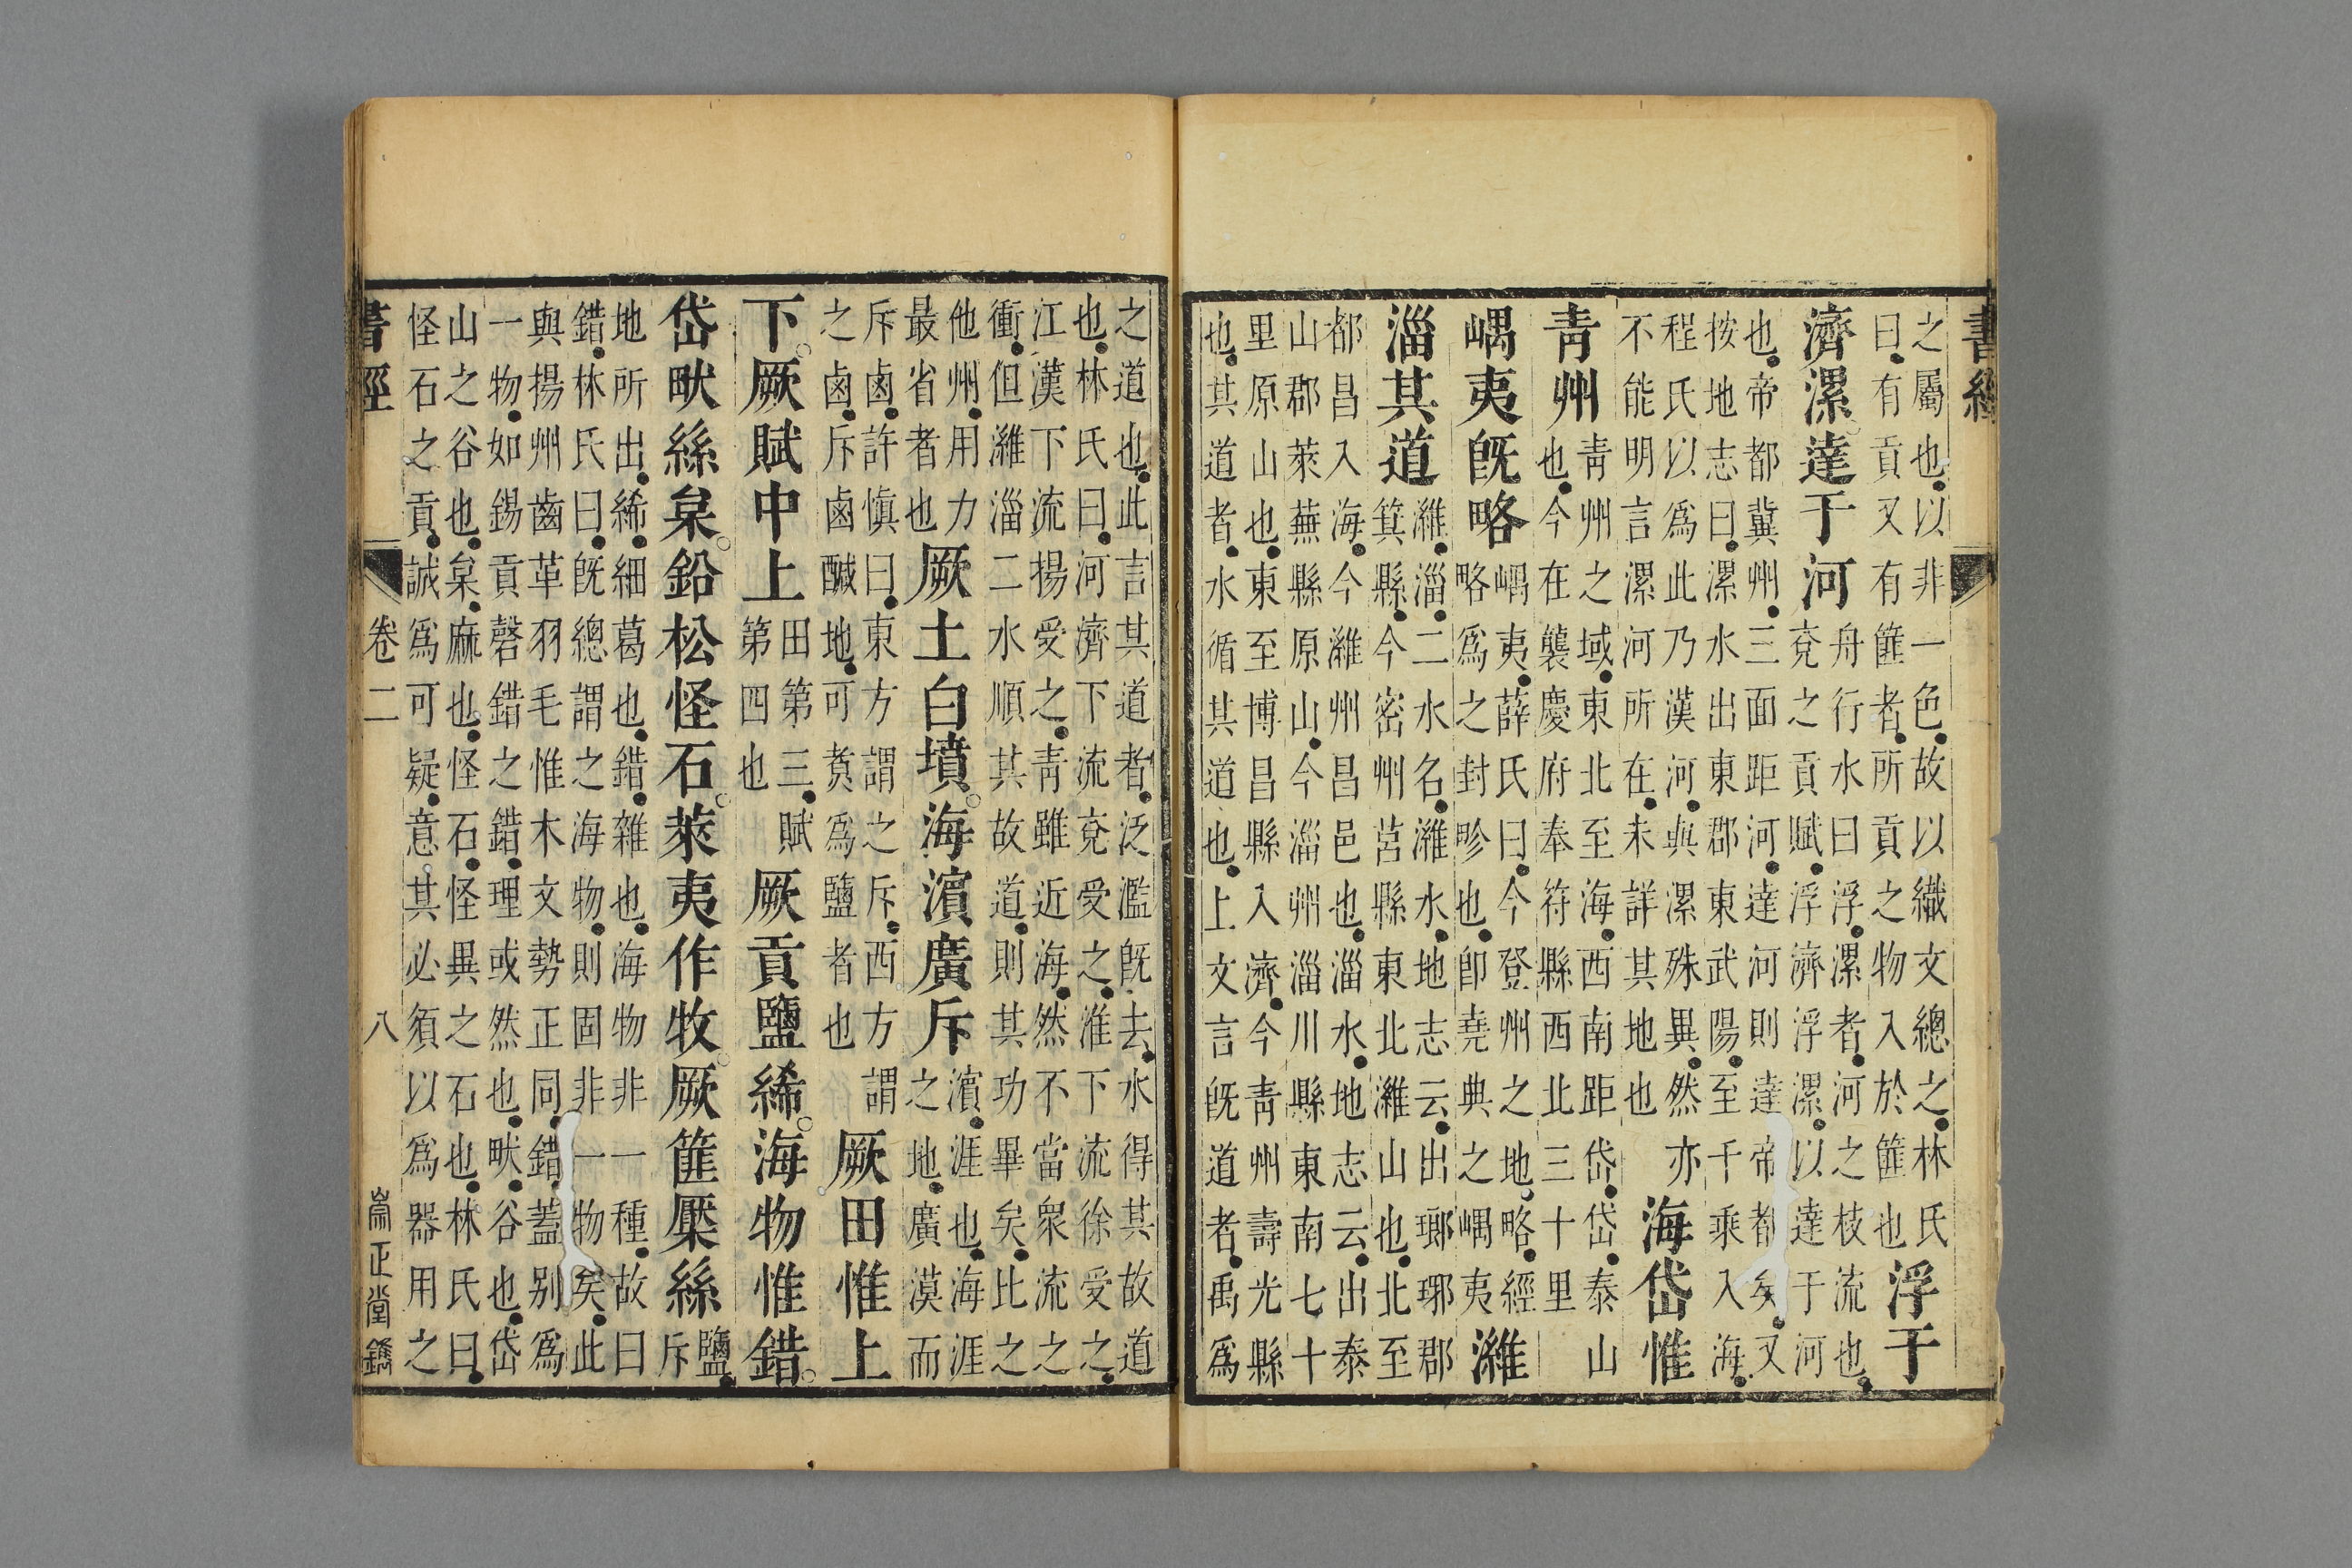 書經
之屬也以非一色故以織文總之林氏
曰有貢又有篚者所貢之物入於篚也
浮于
濟漯達于河
舟行水曰浮漯者河之枝流也
兗之貢賦浮濟浮漯以達于河
也帝都冀州三面距河達河則達帝都矣又
按地志曰漯水出東郡東武陽至千乘入海
程氏以爲此乃漢河與漯殊異然亦
不能明言漯河所在未詳其地也
海岱惟
青州
青州之域東北至海西南距岱岱泰山
也今在襲慶府奉符縣西北三十里
嵎夷旣略
嵎夷薛氏曰今登州之地略經
略爲之封畛也卽堯典之嵎夷
濰
淄其道
濰淄二水名濰水地志云出瑯琊郡
箕縣今密州莒縣東北濰山也北至
都昌入海今濰州昌邑也淄水地志云出泰
山郡萊蕪縣原山今淄州淄川縣東南七十
里原山也東至博昌縣入濟今青州壽光縣
也其道者水循其道也上文言旣道者禹爲
之道也此言其道者泛濫旣去水得其故道
也林氏曰河濟下流兗受之淮下流徐受之
江漢下流揚受之青雖近海然不當衆流之
衝但濰淄二水順其故道則其功畢矣比之
他州用力
最省者也
厥土白墳海濱廣斥
濱涯也海涯
之地廣漠而
斥鹵許慎曰東方謂之斥西方謂
之鹵斥鹵醎地可煑爲鹽者也
厥田惟上
下厥賦中上
田第三賦
第四也
厥貢鹽絺海物惟錯
岱畎絲枲鉛松怪石萊夷作牧厥篚檿絲
鹽
斥
地所出絺細葛也錯雜也海物非一種故曰
錯林氏曰旣總謂之海物則固非一物矣此
與揚州齒革羽毛惟木文勢正同錯蓋别爲
一物如錫貢磬錯之錯理或然也畎谷也岱
山之谷也枲麻也怪石怪異之石也林氏曰
怪石之貢誠爲可疑意其必須以爲器用之
書經 卷二 八 崇正堂鐫